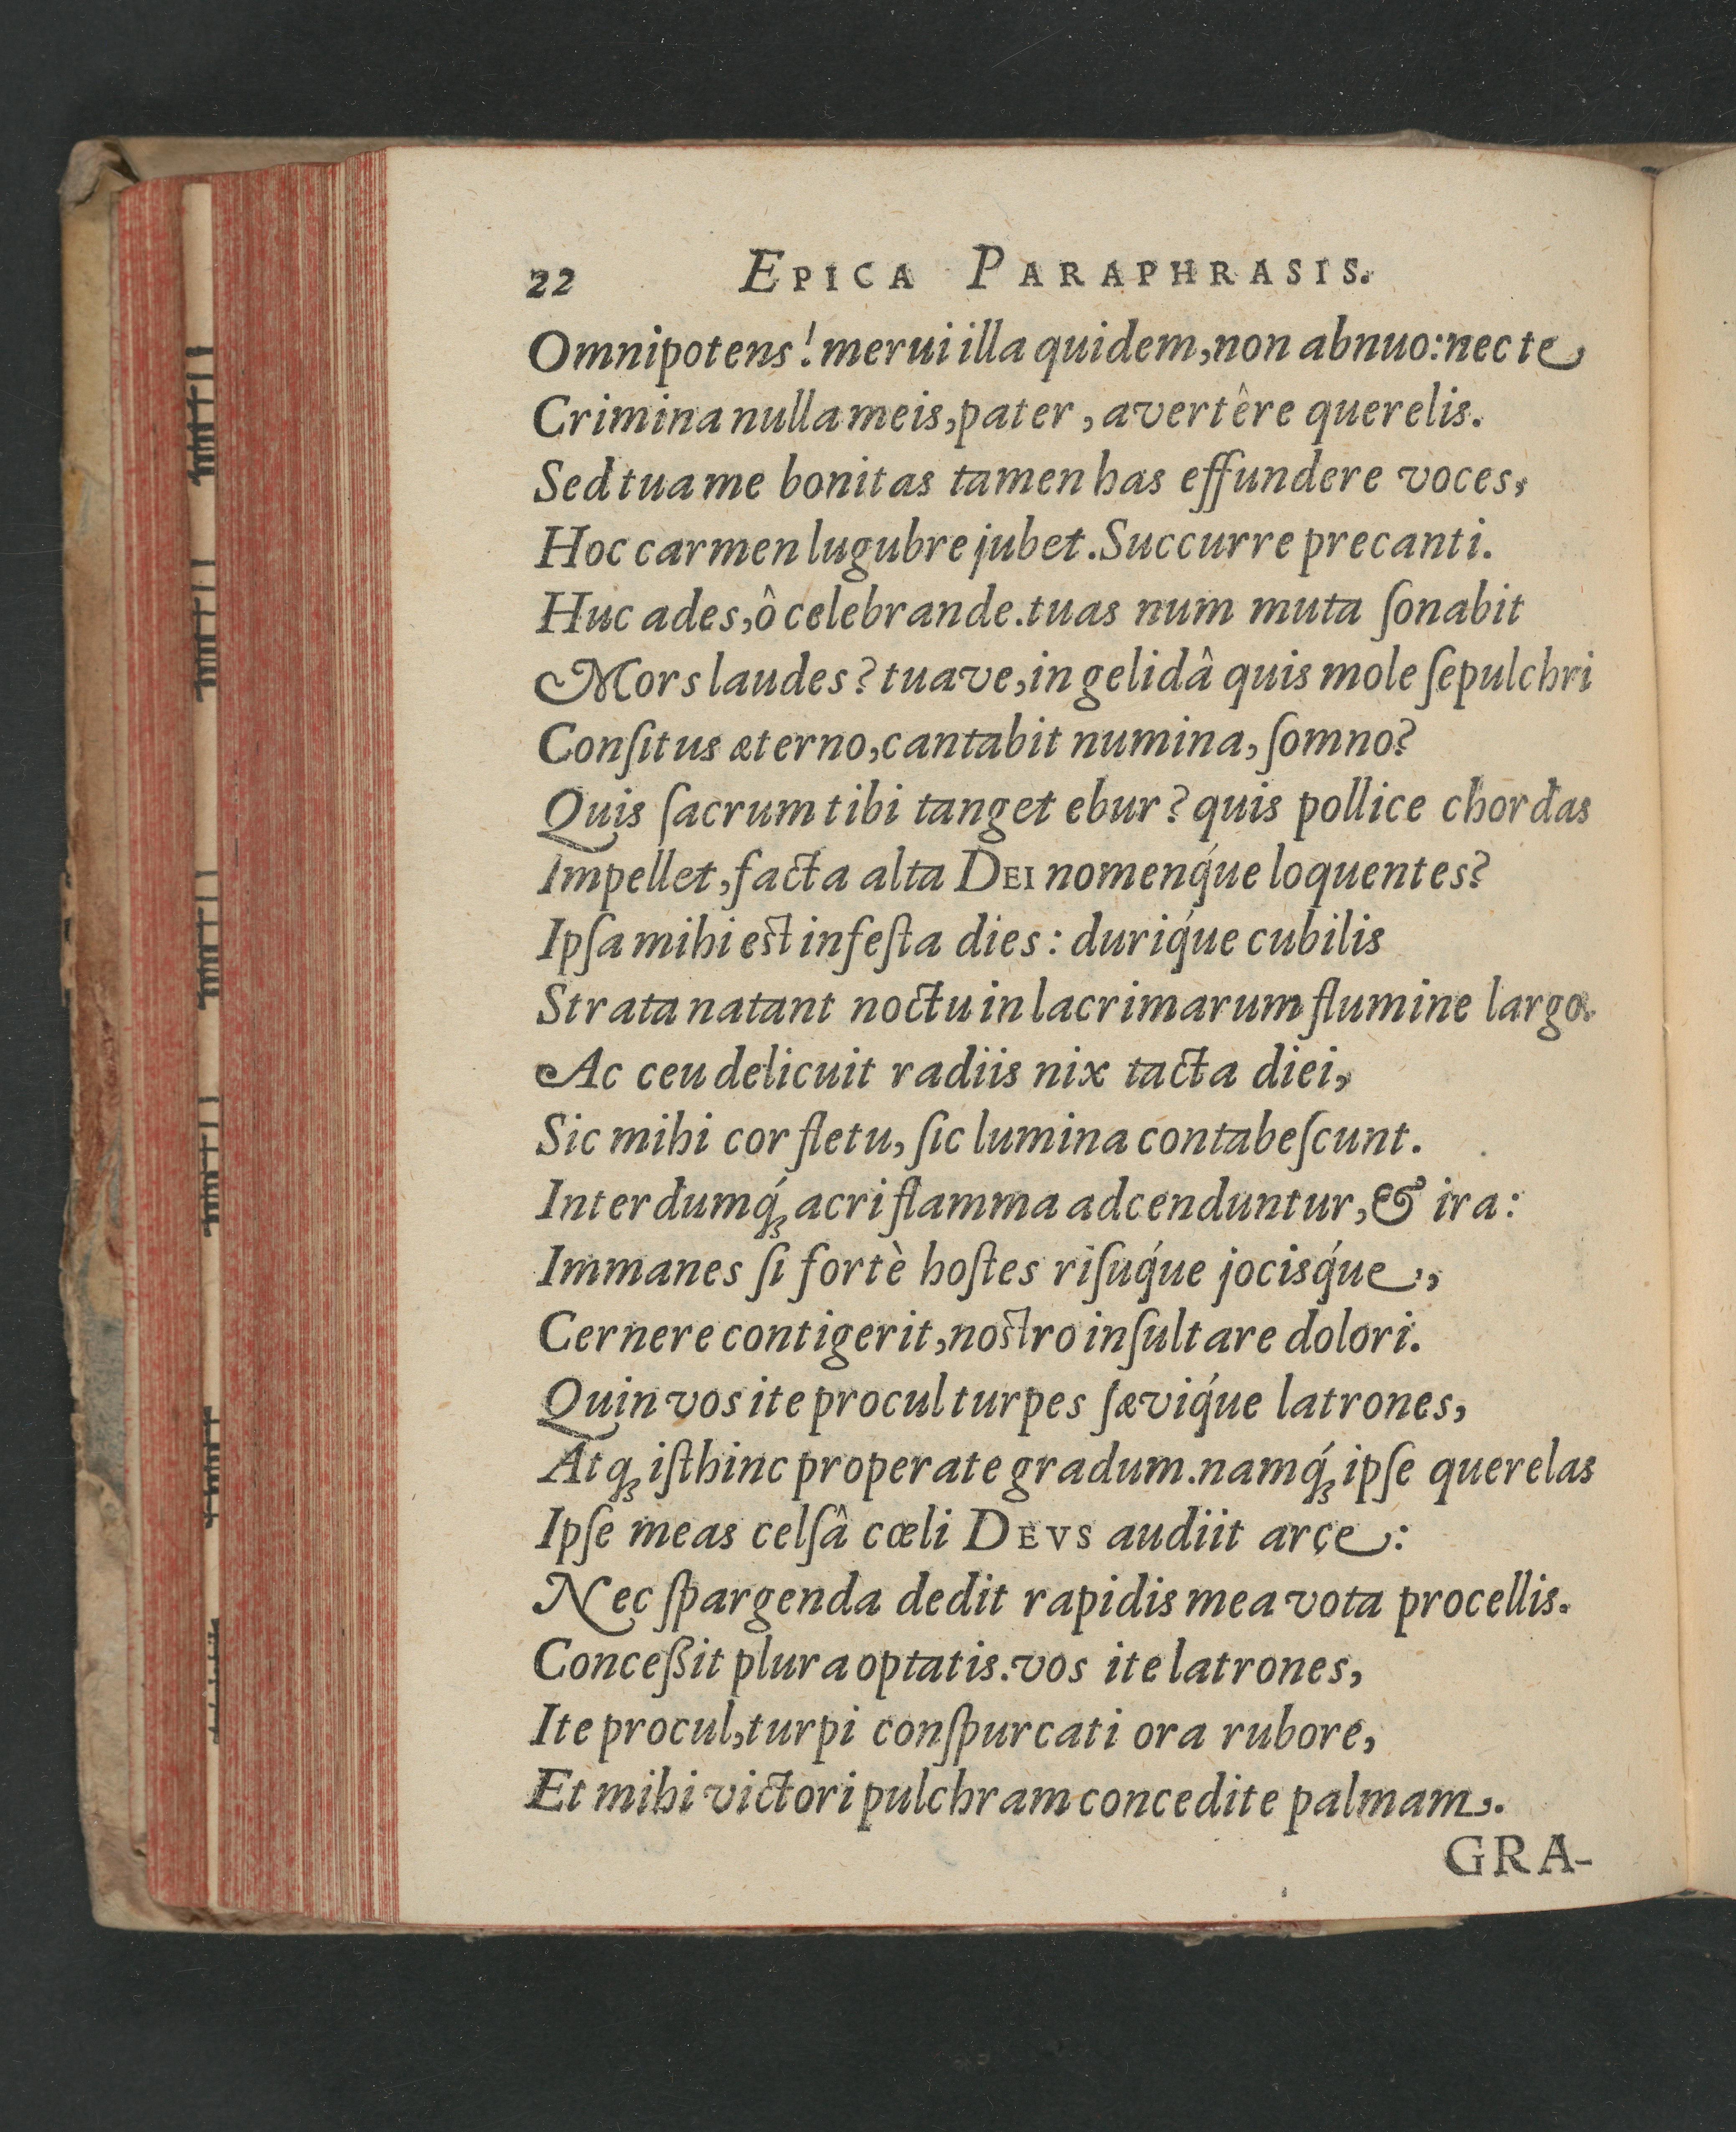 22 EPICA PARAPHRASIS.
Omnipotens! merui illa quidem, non abnuo: nec te
Crimina nulla meis, pater, avertêre querelis.
Sed tua me bonitas tamen has effundere voces,
Hoc carmen lugubre jubet. Succurre precanti.
Huc ades, ô celebrande. tuas num muta ſonabit
Mors laudes? tuave, in gelidâ quis mole ſepulchri
Conſitus æterno, cantabit numina, ſomno?
Quis ſacrum tibi tanget ebur? quis pollice chordas
Impellet, facta alta DEI nomenq́ue loquentes?
Ipſa mihi est infeſta dies: duriq́ue cubilis
Strata natant noctu in lacrimarum flumine largo.
Ac ceu delicuit radiis nix tacta diei,
Sic mihi cor fletu, ſic lumina contabeſcunt.
Interdumq́ꝫ acri flamma adcenduntur, & ira:
Immanes ſi fortè hoſtes riſuq́ue jocisq́ue,
Cernere contigerit, nostro inſultare dolori.
Quin vos ite procul turpes ſæviq́ue latrones,
Atqꝫ iſthinc properate gradum. namq́ꝫ ipſe querelas
Ipſe meas celſâ cœli DEVS audiit arçe:
Nec ſpargenda dedit rapidis mea vota procellis.
Conceßit plura optatis. vos ite latrones,
Ite procul, turpi conſpurcati ora rubore,
Et mihi victori pulchram concedite palmam.
GRA-